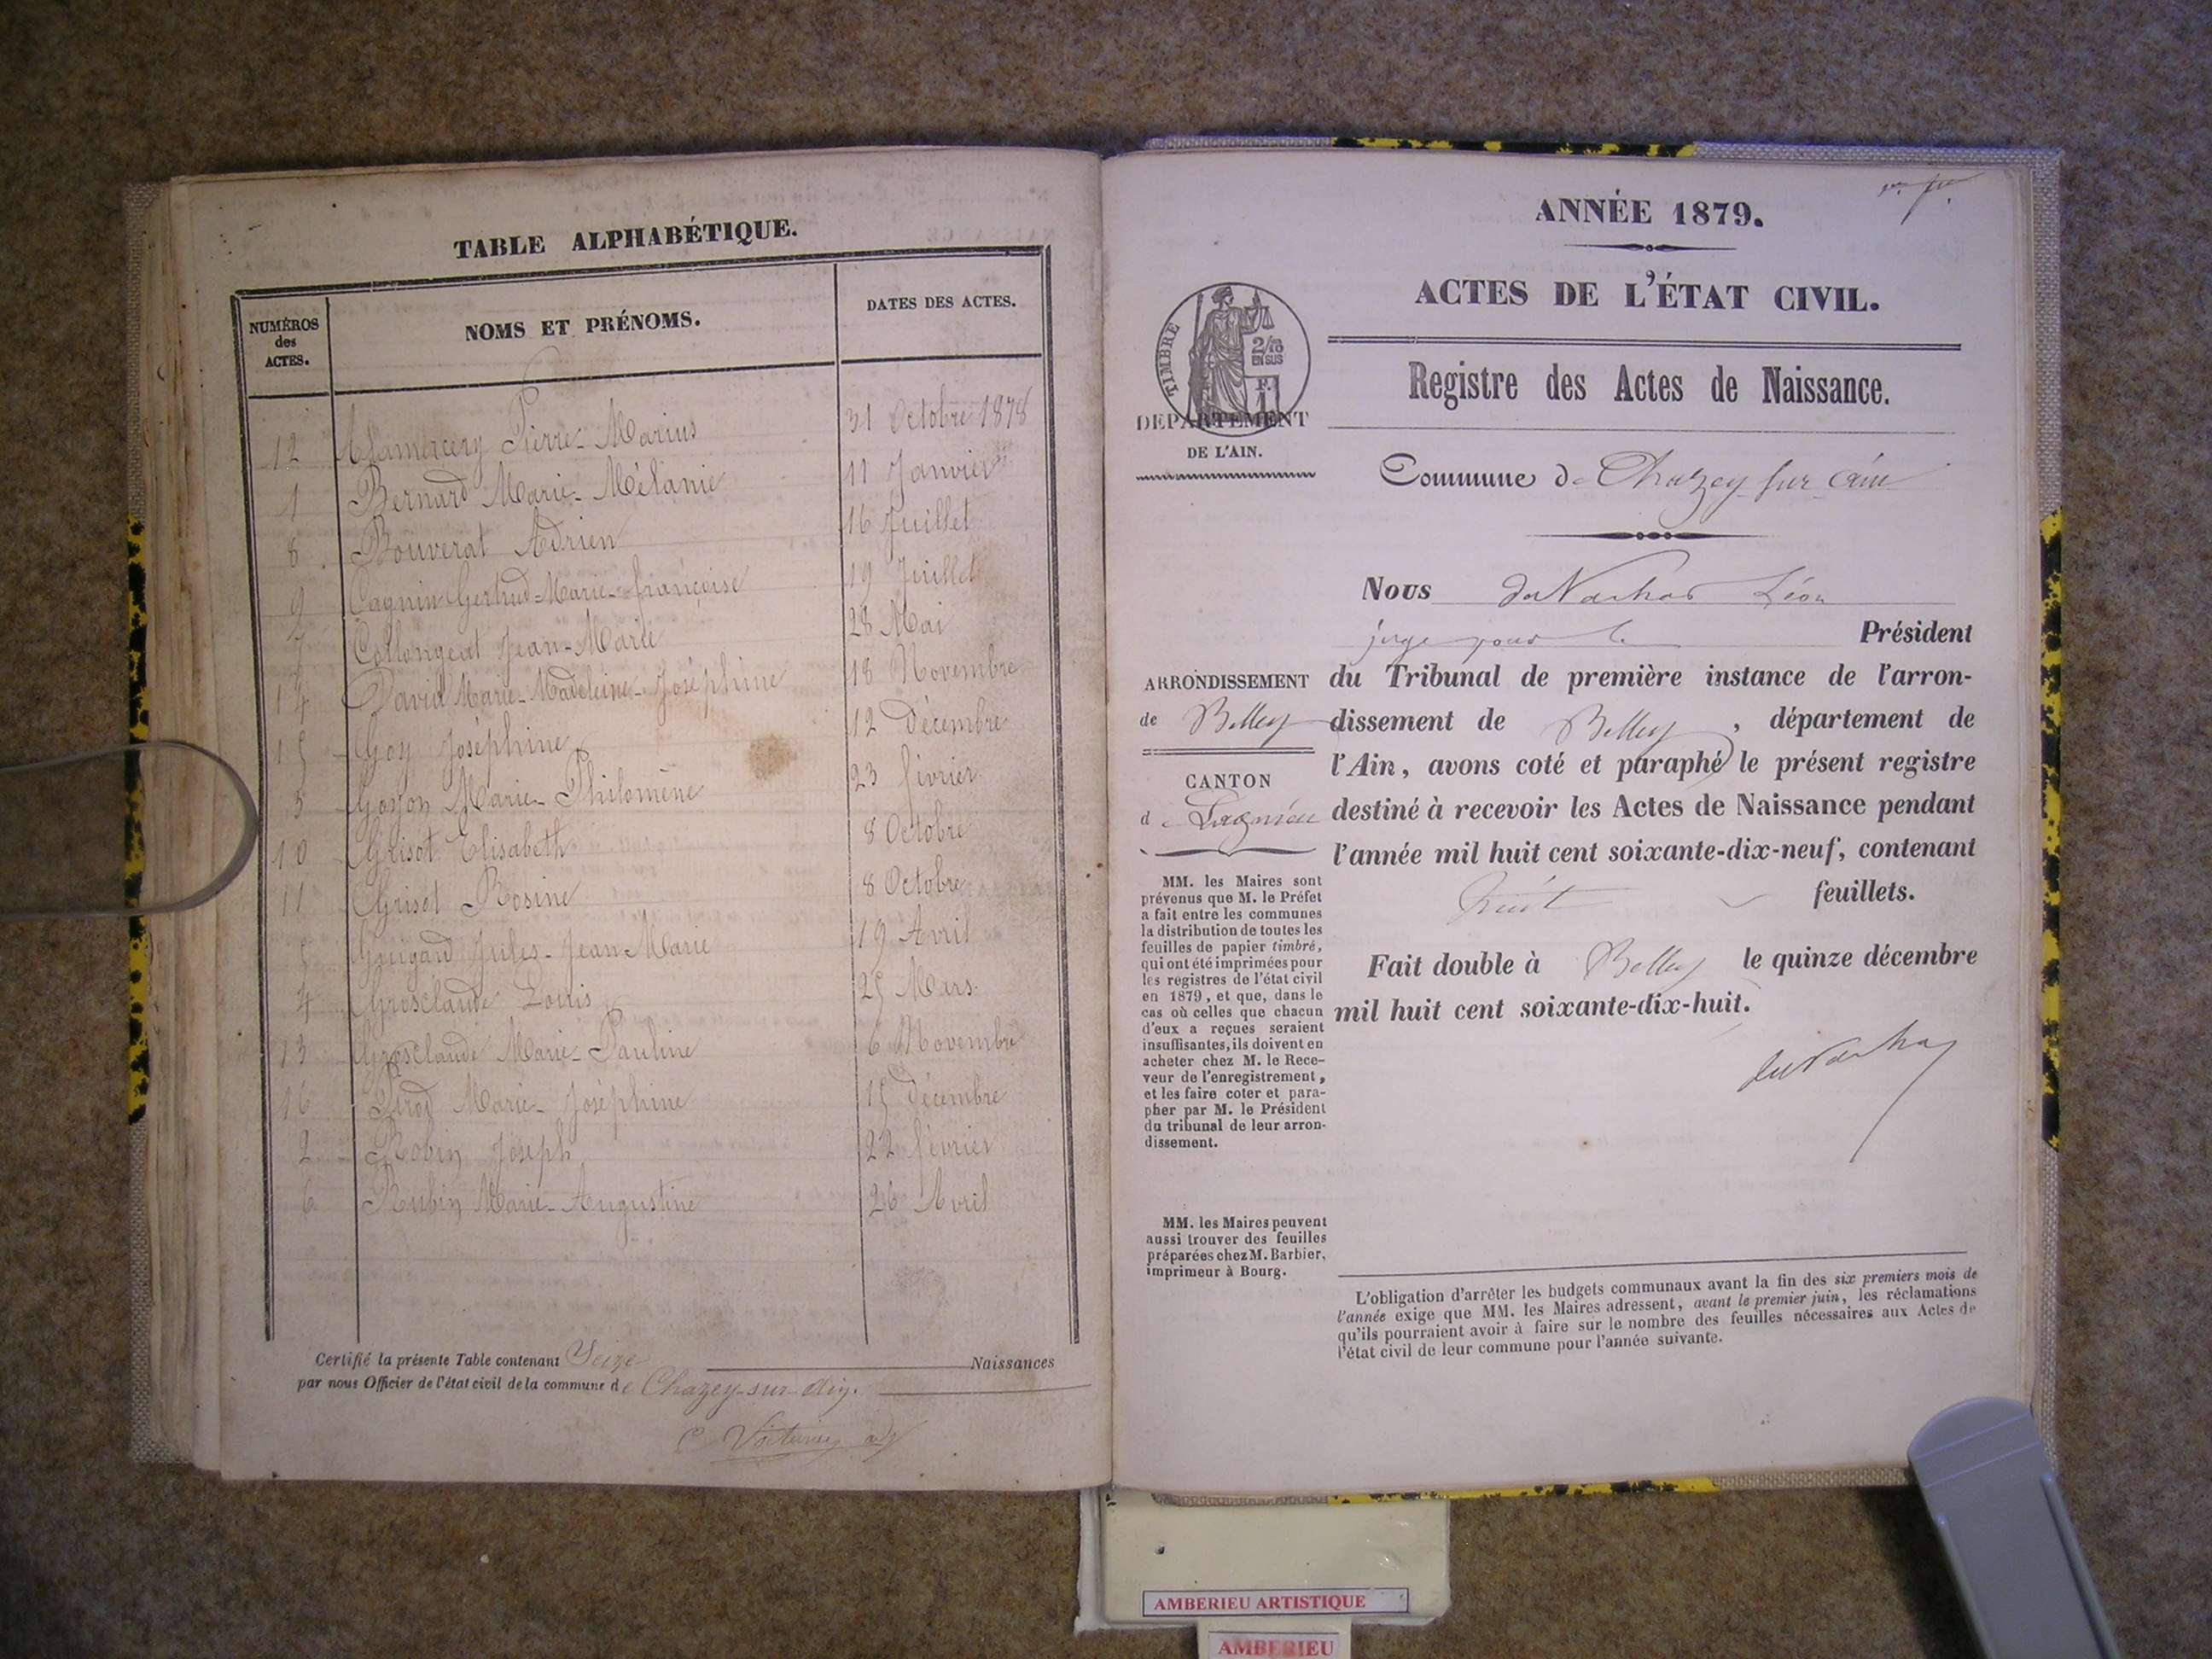 TABLE ALPHABÉTIQUE.
NUMÉROS des ACTES.
NOMS ET PRÉNOMS.
DATES DES ACTES.
12 Pierre-Marius 31 Octobre 1878
1 Bernard Marie-Mélanie 11 Janvier
8 Bouverat Adrien 16 Juillet
9 Cagnin Gertrud-Marie-Françoise 19 Juillet
7 Collongeat Jean-Marie 28 Mai
14 David Marie-Madeleine-Joséphine 18 Novembre
15 Goy Joséphine 12 Décembre
3 Goyon Marie-Philomène 23 février
10 Grisot Elisabeth 8 Octobre
11 Grisot Rosine 8 Octobre
5 Jules-Jean-Marie 19 Avril
4 Grosclaude Louis 25 Mars
13 Grosclaude Marie-Pauline 6 Novembre
16 Marie-Joséphine 15 Décembre
2 Robin Joseph 22 février
6 Rubin Marie-Augustine 26 Avril
Certifié la présente Table contenant Seize Naissances
par nous Officier de l'état civil de la commune de Chazey-sur-Ain.
ANNÉE 1879.
ACTES DE L'ÉTAT CIVIL.
Registre des Actes de Naissance.
TIMBRE
2/10
EN SUS
DEPARTEMENT
DE L'AIN.
Commune de Chazey sur Ain
Nous Léon
juge pour le Président
ARRONDISSEMENT
de Belley
CANTON
de Lagnieu
du Tribunal de première instance de l'arron-
dissement de Belley, département de
l'Ain, avons coté et paraphé le présent registre
destiné à recevoir les Actes de Naissance pendant
l'année mil huit cent soixante-dix-neuf, contenant
huit feuillets.
Fait double à Belley le quinze décembre
mil huit cent soixante-dix-huit.
MM. les Maires sont
prévenus que M. le Préfet
a fait entre les communes
la distribution de toutes les
feuilles de papier timbré,
qui ont été imprimées pour
les registres de l'état civil
en 1879, et que, dans le
cas où celles que chacun
d'eux a reçues seraient
insuffisantes, ils doivent en
acheter chez M. le Rece-
veur de l'enregistrement,
et les faire coter et para-
pher par M. le Président
du tribunal de leur arron-
dissement.
MM. les Maires peuvent
aussi trouver des feuilles
préparées chez M. Barbier,
imprimeur à Bourg.
L'obligation d'arrêter les budgets communaux avant la fin des six premiers mois de
l'année exige que MM. les Maires adressent, avant le premier juin, les réclamations
qu'ils pourraient avoir à faire sur le nombre des feuilles nécessaires aux Actes de
l'état civil de leur commune pour l'année suivante.
AMBERIEU ARTISTIQUE
AMBERIEU